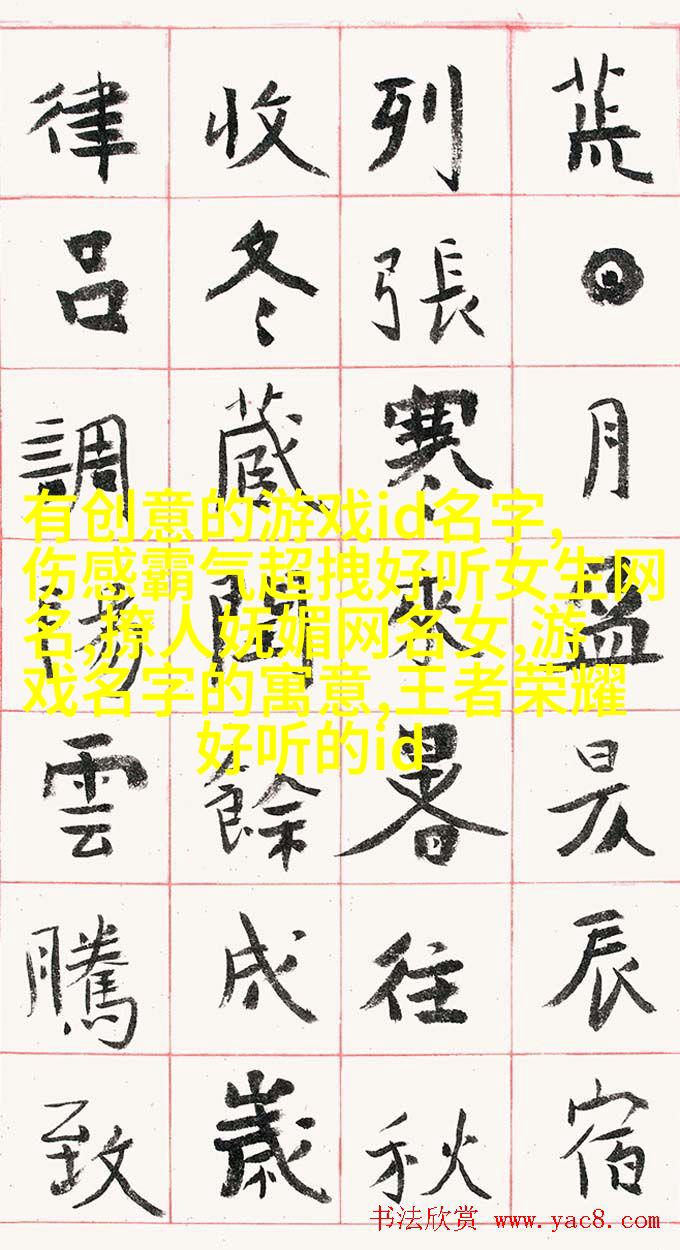 荒日月盈昃辰宿
列張寒來暑往秋
收冬藏閏餘成歲
律吕調陽雲騰致
有创意的游戏id名字,
伤感霸气超拽好听女生网
名,撩人妩媚网名女,游
戏名字的寓意,王者荣耀
好听的id
书法欣赏 www.yac8.com